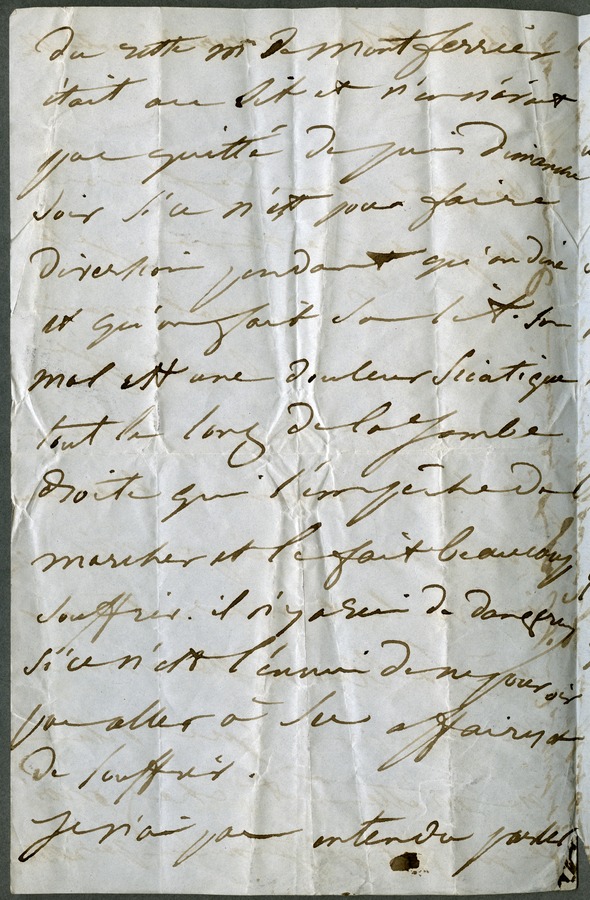 du reste mr De montferrier
était au Lit et n'en sérait
pas quitté Depuis Dimanche
soir si ce n'est pour faire
Diversion pendant qu'on dine
et qu'on fait son Lit. Son
mal est une douleur Sciatique
tout le long de la Jambe
droite qui l'empêche de
marcher et le fait beaucoup
souffrir. il n'y a rien de dangereux
si ce n'est l'ennui de ne pouvoir
pas aller à ses affaires et
de souffrir.
Je n'ai pas entendu parler